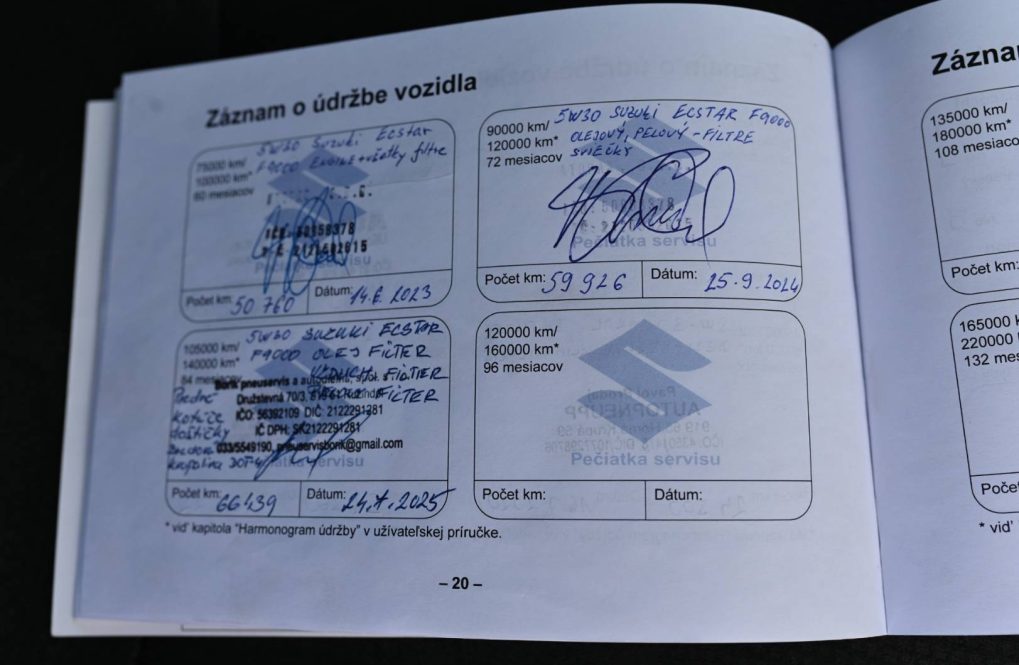 Záznam o údržbe vozidla
75000 km/
100000 km*
60 mesiacov
5W30 Suzuki Ecstar
F9000 ENGINE + všetky filtre
Pečiatka servisu
Počet km: 50 760
Dátum: 14.6.2023
90000 km/
120000 km*
72 mesiacov
5W30 SUZUKI ECSTAR F9000
OLEJOVÝ, PEĽOVÝ - FILTRE
SVIEČKY
Pečiatka servisu
Počet km: 59 926
Dátum: 25.9.2024
105000 km/
140000 km*
84 mesiacov
5W30 SUZUKI ECSTAR
F9000 OLEJ FILTER
VZDUCH FILTER
FILTER
Predné
Kotúče
doštičky
DOT4
Borik pneuservis a
Družstevná 70/3,
IČO: 56392109 DIČ: 2122291281
IČ DPH: SK2122291281
033/5549190, pneuservisborik@gmail.com
Počet km: 66439
Dátum: 24.X.2025
120000 km/
160000 km*
96 mesiacov
Pečiatka servisu
Počet km:
Dátum:
* viď kapitola "Harmonogram údržby" v užívateľskej príručke.
– 20 –
Zázna
135000 km/
180000 km*
108 mesiaco
Počet km:
165000
220000
132 mes
Poče
* viď